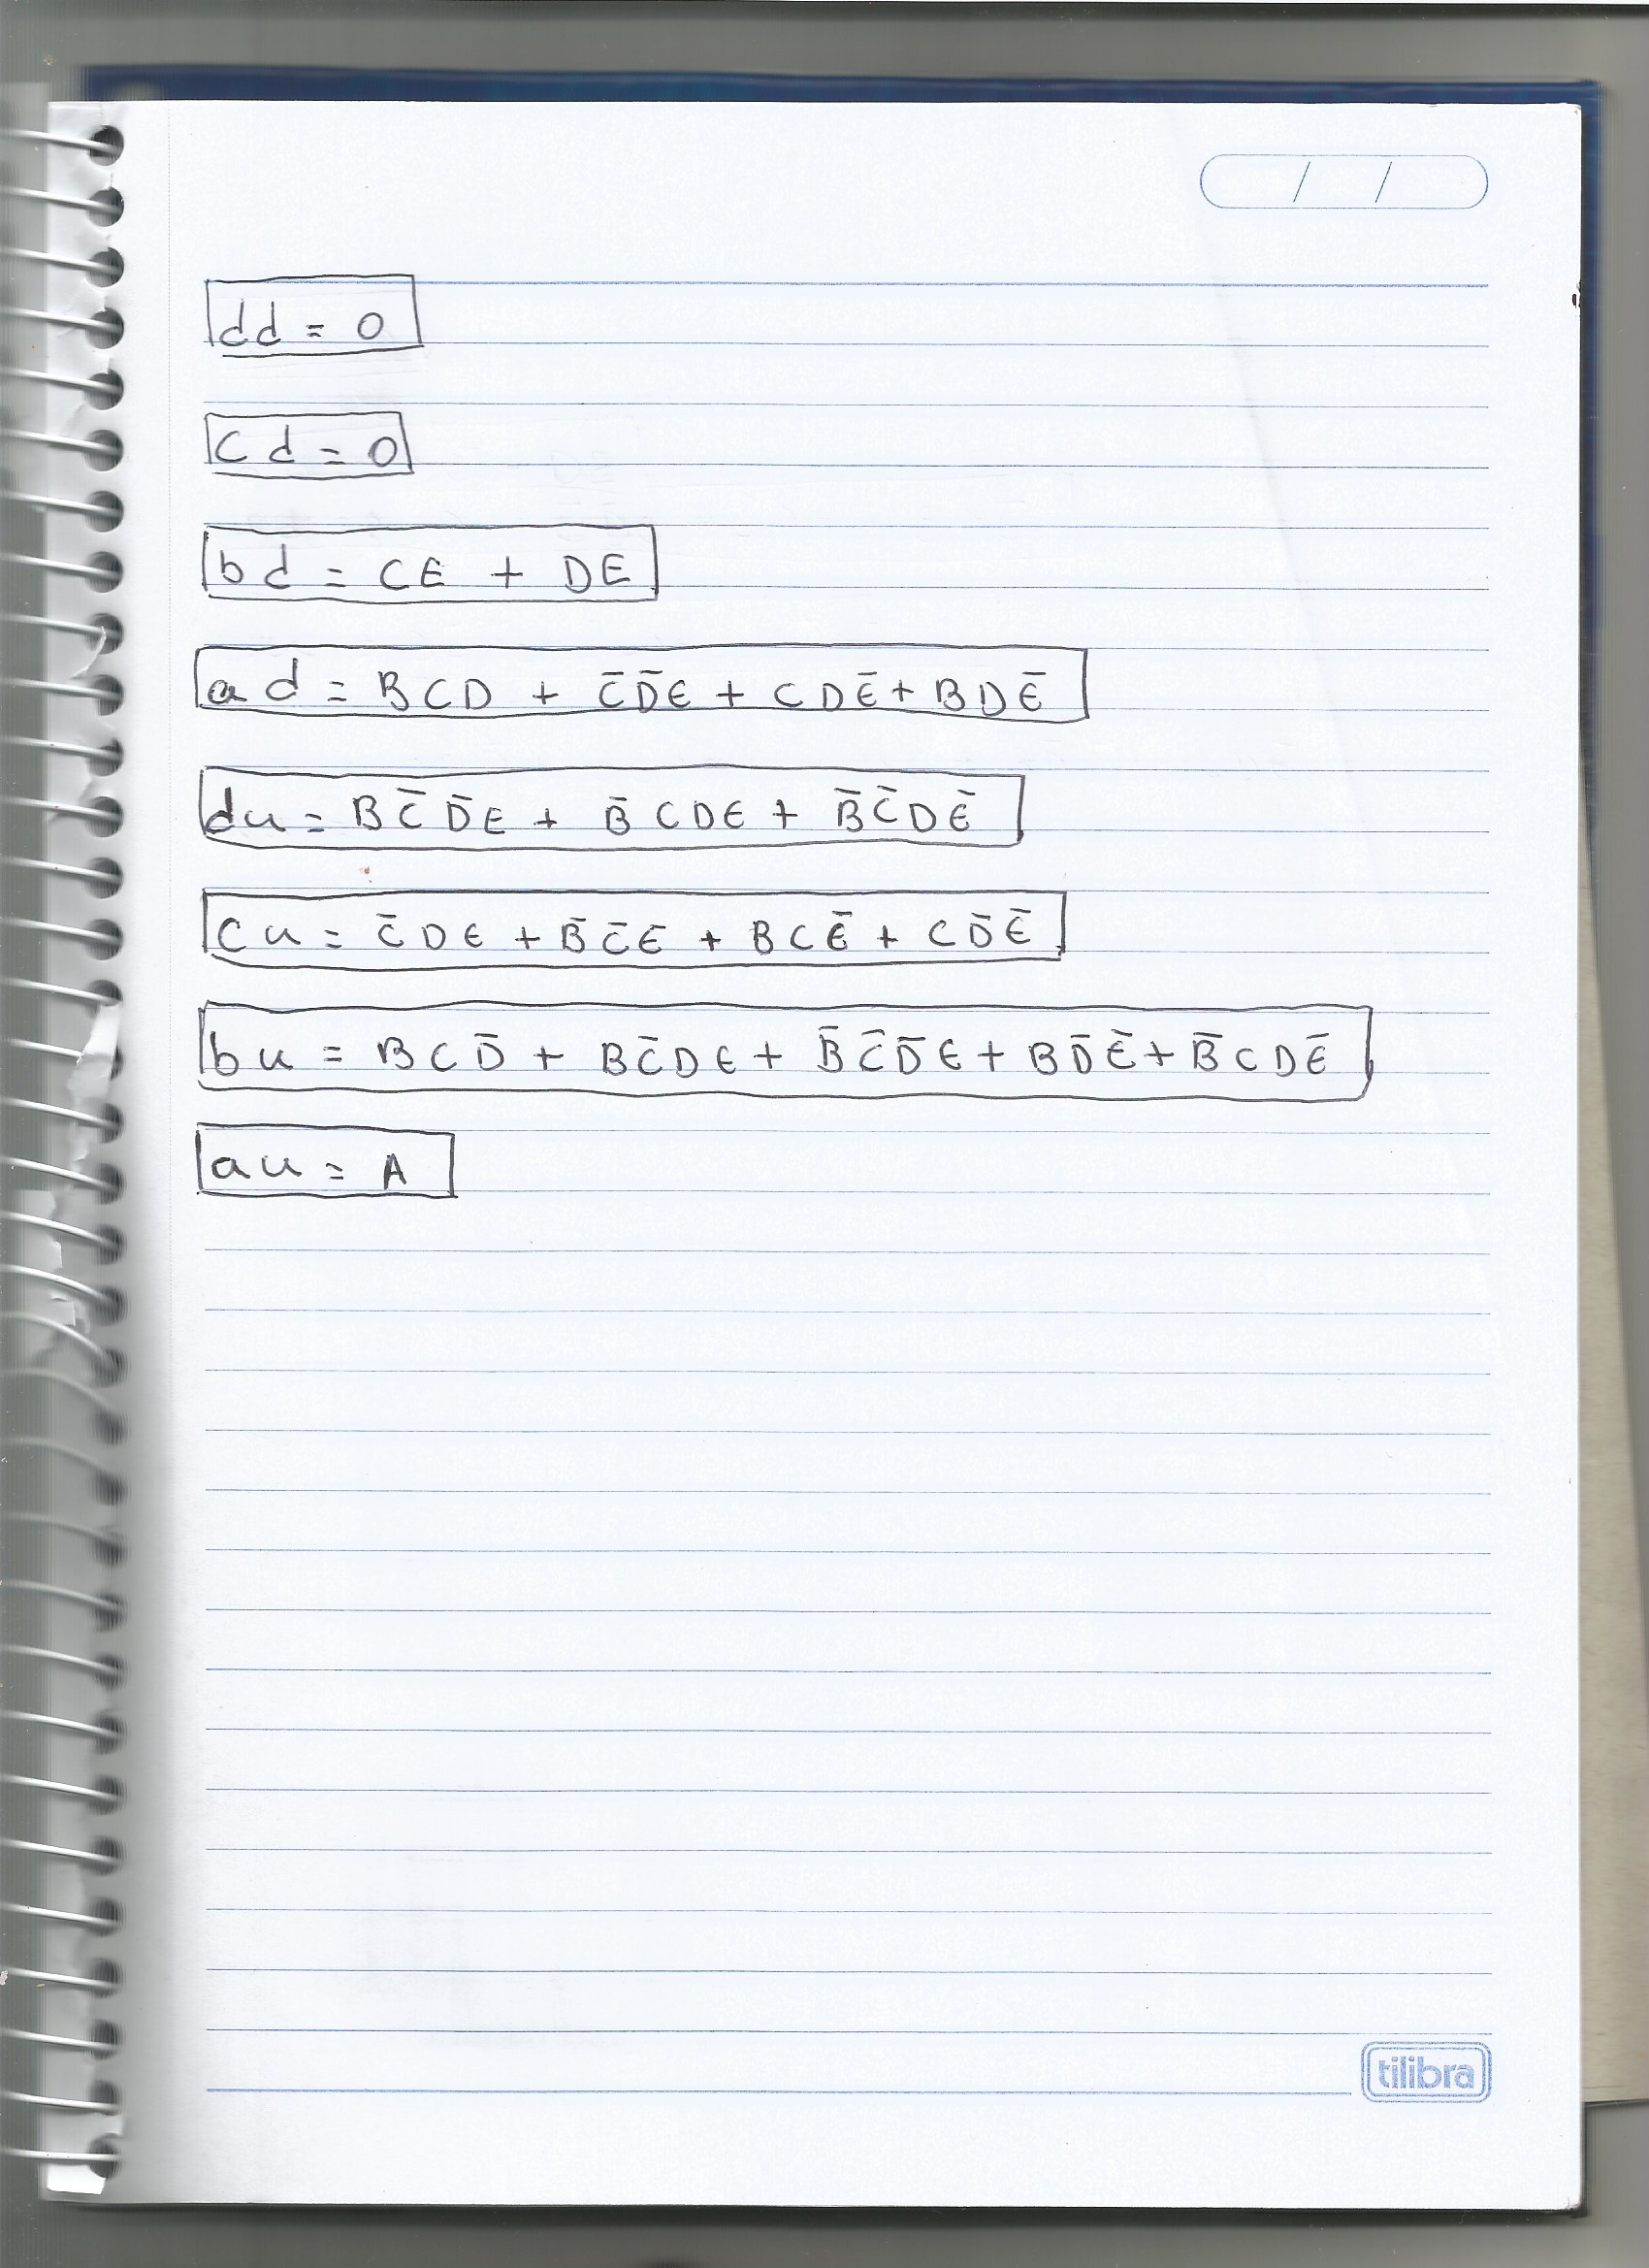 / /
dd = 0
Cd = 0
bd = CE + DE
ad = BCD + C̄D̄E + CDĒ + BDĒ
du = BC̄D̄E + B̄CDE + B̄C̄DĒ
Cu = C̄DE + B̄C̄E + BCĒ + CD̄Ē
bu = BCD̄ + BC̄DE + B̄C̄D̄E + BD̄Ē + B̄CDĒ
au = A
tilibra